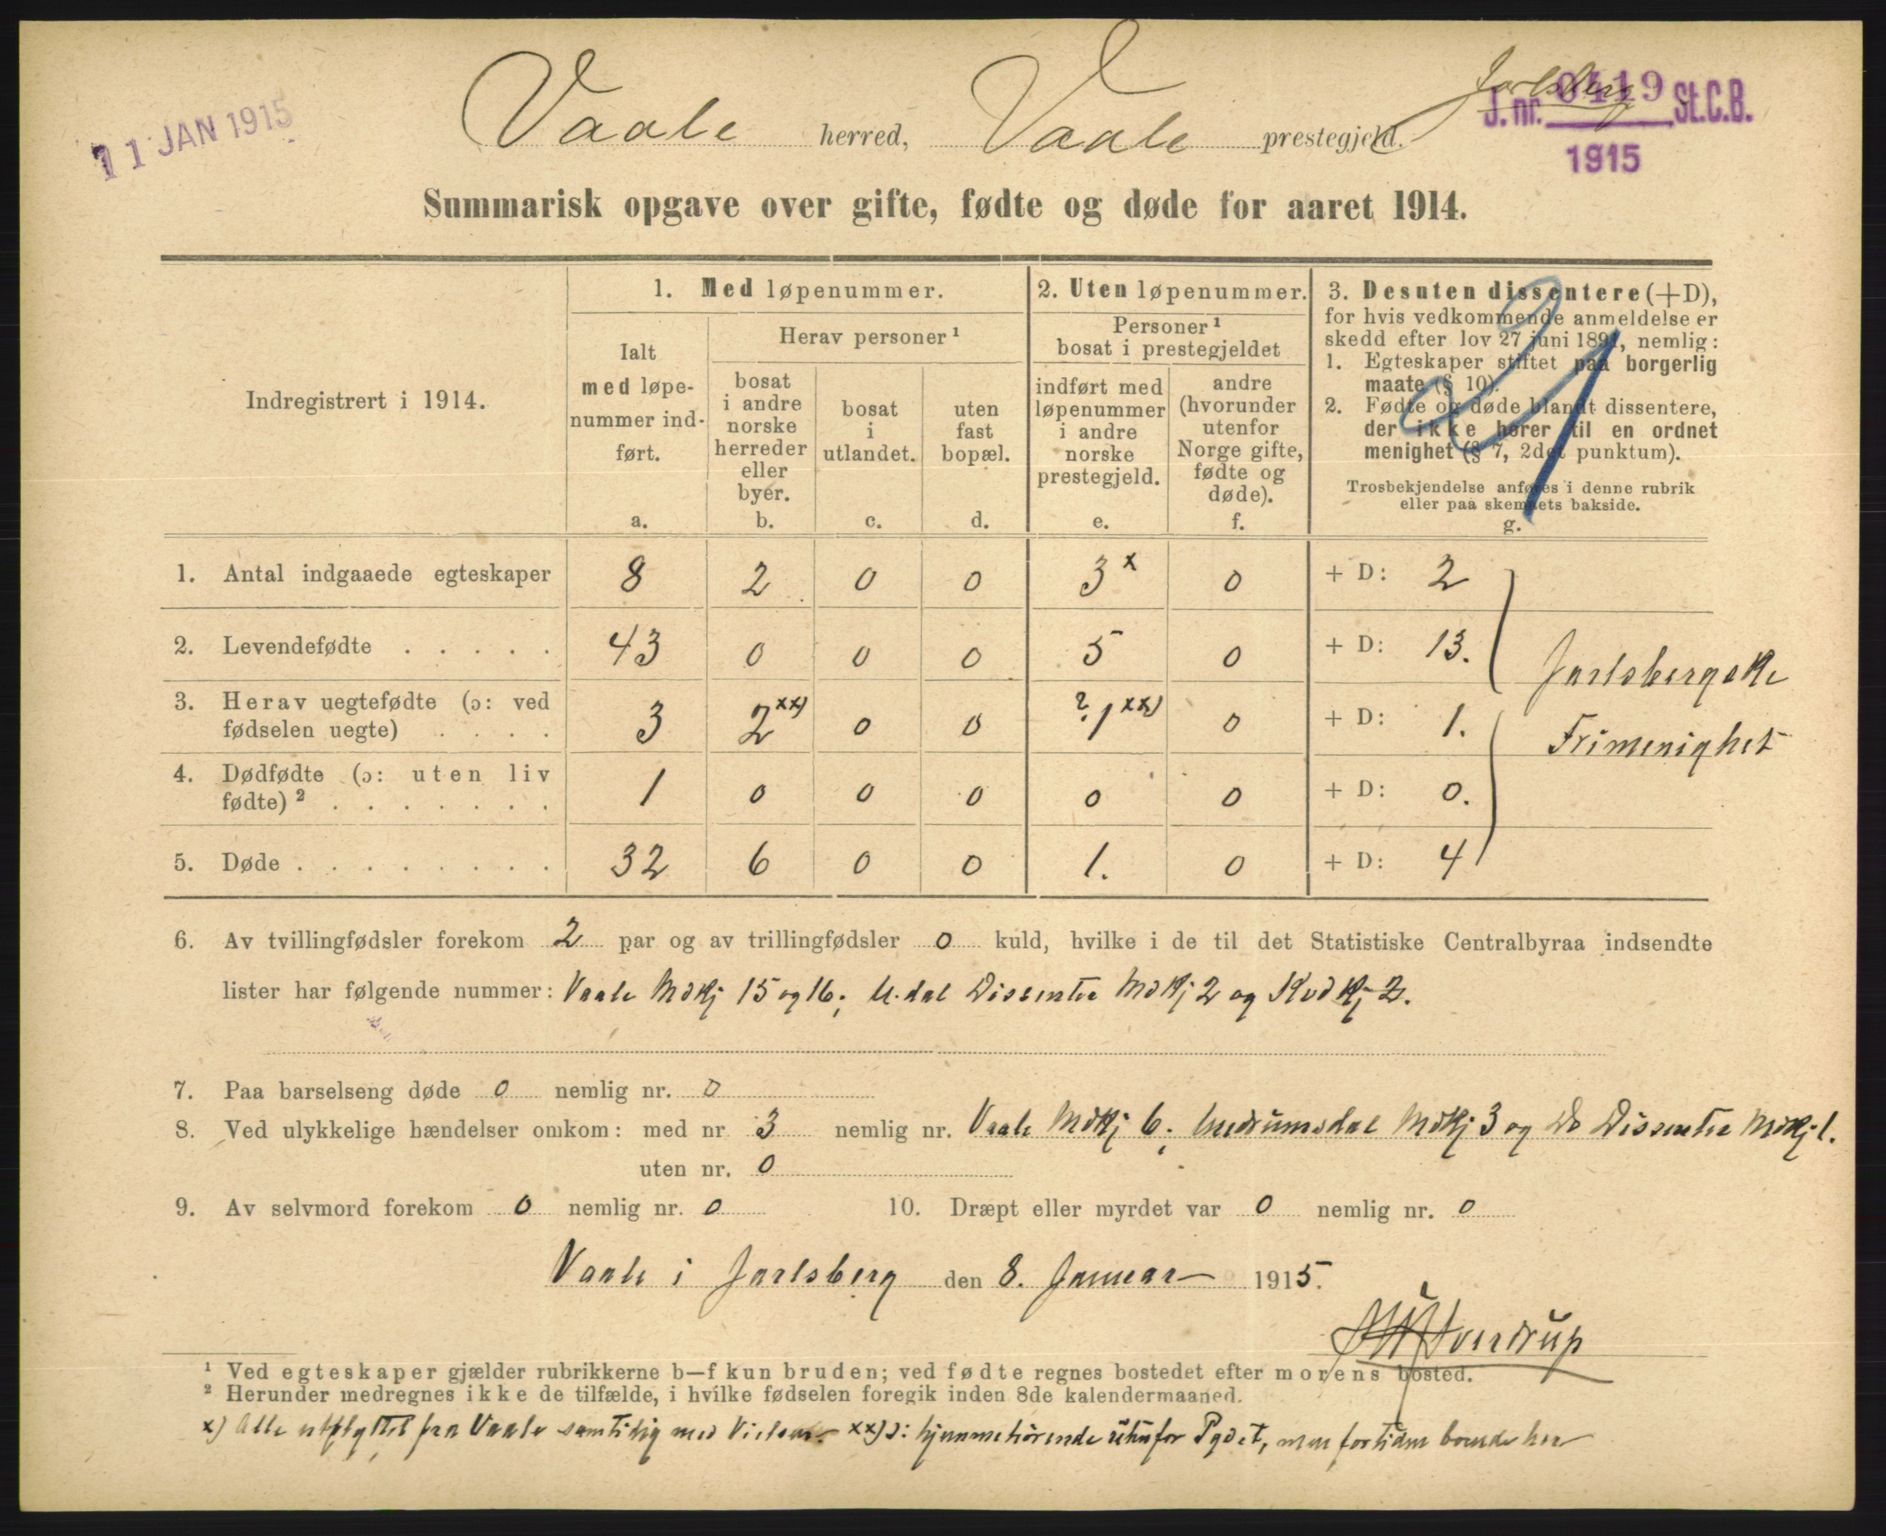 11 JAN 1915
Vaale herred, Vaale prestegjeld. Jarlsberg
J. nr. 0419 St.C.B.
1915
Summarisk opgave over gifte, fødte og døde for aaret 1914.
21
Indregistrert i 1914.
1. Med løpenummer.
Ialt
med løpe-
nummer ind-
ført.
a.
Herav personer ¹
bosat
i andre
norske
herreder
eller
byer.
b.
bosat
i
utlandet.
c.
uten
fast
bopæl.
d.
2. Uten løpenummer.
Personer ¹
bosat i prestegjeldet
indført med
løpenummer
i andre
norske
prestegjeld.
e.
andre
(hvorunder
utenfor
Norge gifte,
fødte og
døde).
f.
3. Desuten dissentere (+D),
for hvis vedkommende anmeldelse er
skedd efter lov 27 juni 1891, nemlig:
1. Egteskaper stiftet paa borgerlig
maate (§ 10).
2. Fødte og døde blandt dissentere,
der ikke hører til en ordnet
menighet (§ 7, 2det punktum).
Trosbekjendelse anføres i denne rubrik
eller paa skemaets bakside.
g.
1. Antal indgaaede egteskaper 8 2 0 0 3 x 0 + D: 2
2. Levendefødte . . . . . 43 0 0 0 5 0 + D: 13.
3. Herav uegtefødte (ɔ: ved
fødselen uegte) . . . . 3 2 xx) 0 0 ? 1 xx) 0 + D: 1.
4. Dødfødte (ɔ: uten liv
fødte) ² . . . . . . . 1 0 0 0 0 0 + D: 0.
5. Døde . . . . . . . . 32 6 0 0 1. 0 + D: 4
Jarlsbergske
Frimenighet
6. Av tvillingfødsler forekom 2 par og av trillingfødsler 0 kuld, hvilke i de til det Statistiske Centralbyraa indsendte
lister har følgende nummer: Vaale Mdkj 15 og 16; U.dal Dissenter Mdkj 2 og Kvdkj 2.
7. Paa barselseng døde 0 nemlig nr. 0
8. Ved ulykkelige hændelser omkom: med nr 3 nemlig nr. Vaale Mdkj 6; Undrumsdal Mdkj 3 og Do Dissenter Mdkj 1.
uten nr. 0
9. Av selvmord forekom 0 nemlig nr. 0 10. Dræpt eller myrdet var 0 nemlig nr. 0
Vaale i Jarlsberg den 8. Januar 1915.
Sverdrup
¹ Ved egteskaper gjælder rubrikkerne b—f kun bruden; ved fødte regnes bostedet efter morens bosted.
² Herunder medregnes ikke de tilfælde, i hvilke fødselen foregik inden 8de kalendermaaned.
x) Alle utflyttet fra Vaale samtidig med Vielsen. xx) ɔ: hjemmehørende utenfor Pgdet, men fortiden boende her